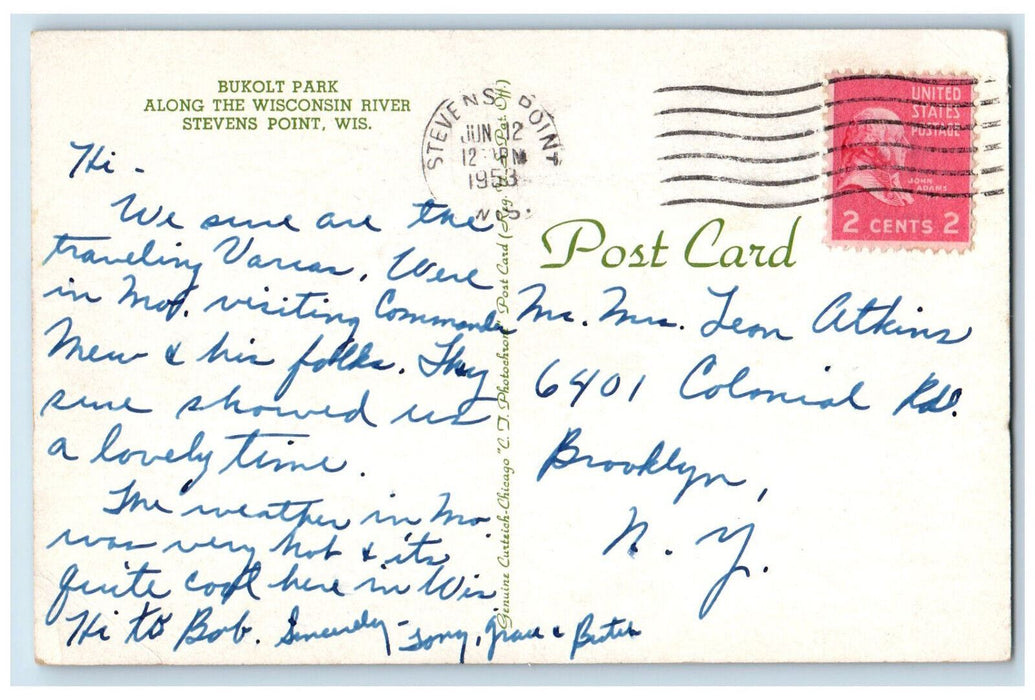 BUKOLT PARK
ALONG THE WISCONSIN RIVER
STEVENS POINT, WIS.
STEVENS POINT
JUN 12
12 PM
1953
WIS.
UNITED
STATES
POSTAGE
JOHN
ADAMS
2 CENTS 2
Post Card
Hi -
We sure are the
traveling Vareas. Were
in Mo. visiting Commander
Mew & his folks. They
sure showed us
a lovely time.
The weather in Mo.
was very hot & its
quite cool here in Wis
Hi to Bob. Sincerely - Tony, Grace & Butch
Genuine Curteich-Chicago "C.T. Photochrom" Post Card (Reg. U.S. Pat. Off.)
Mr. Mrs. Leon Atkins
6401 Colonial Rd.
Brooklyn,
N. Y.